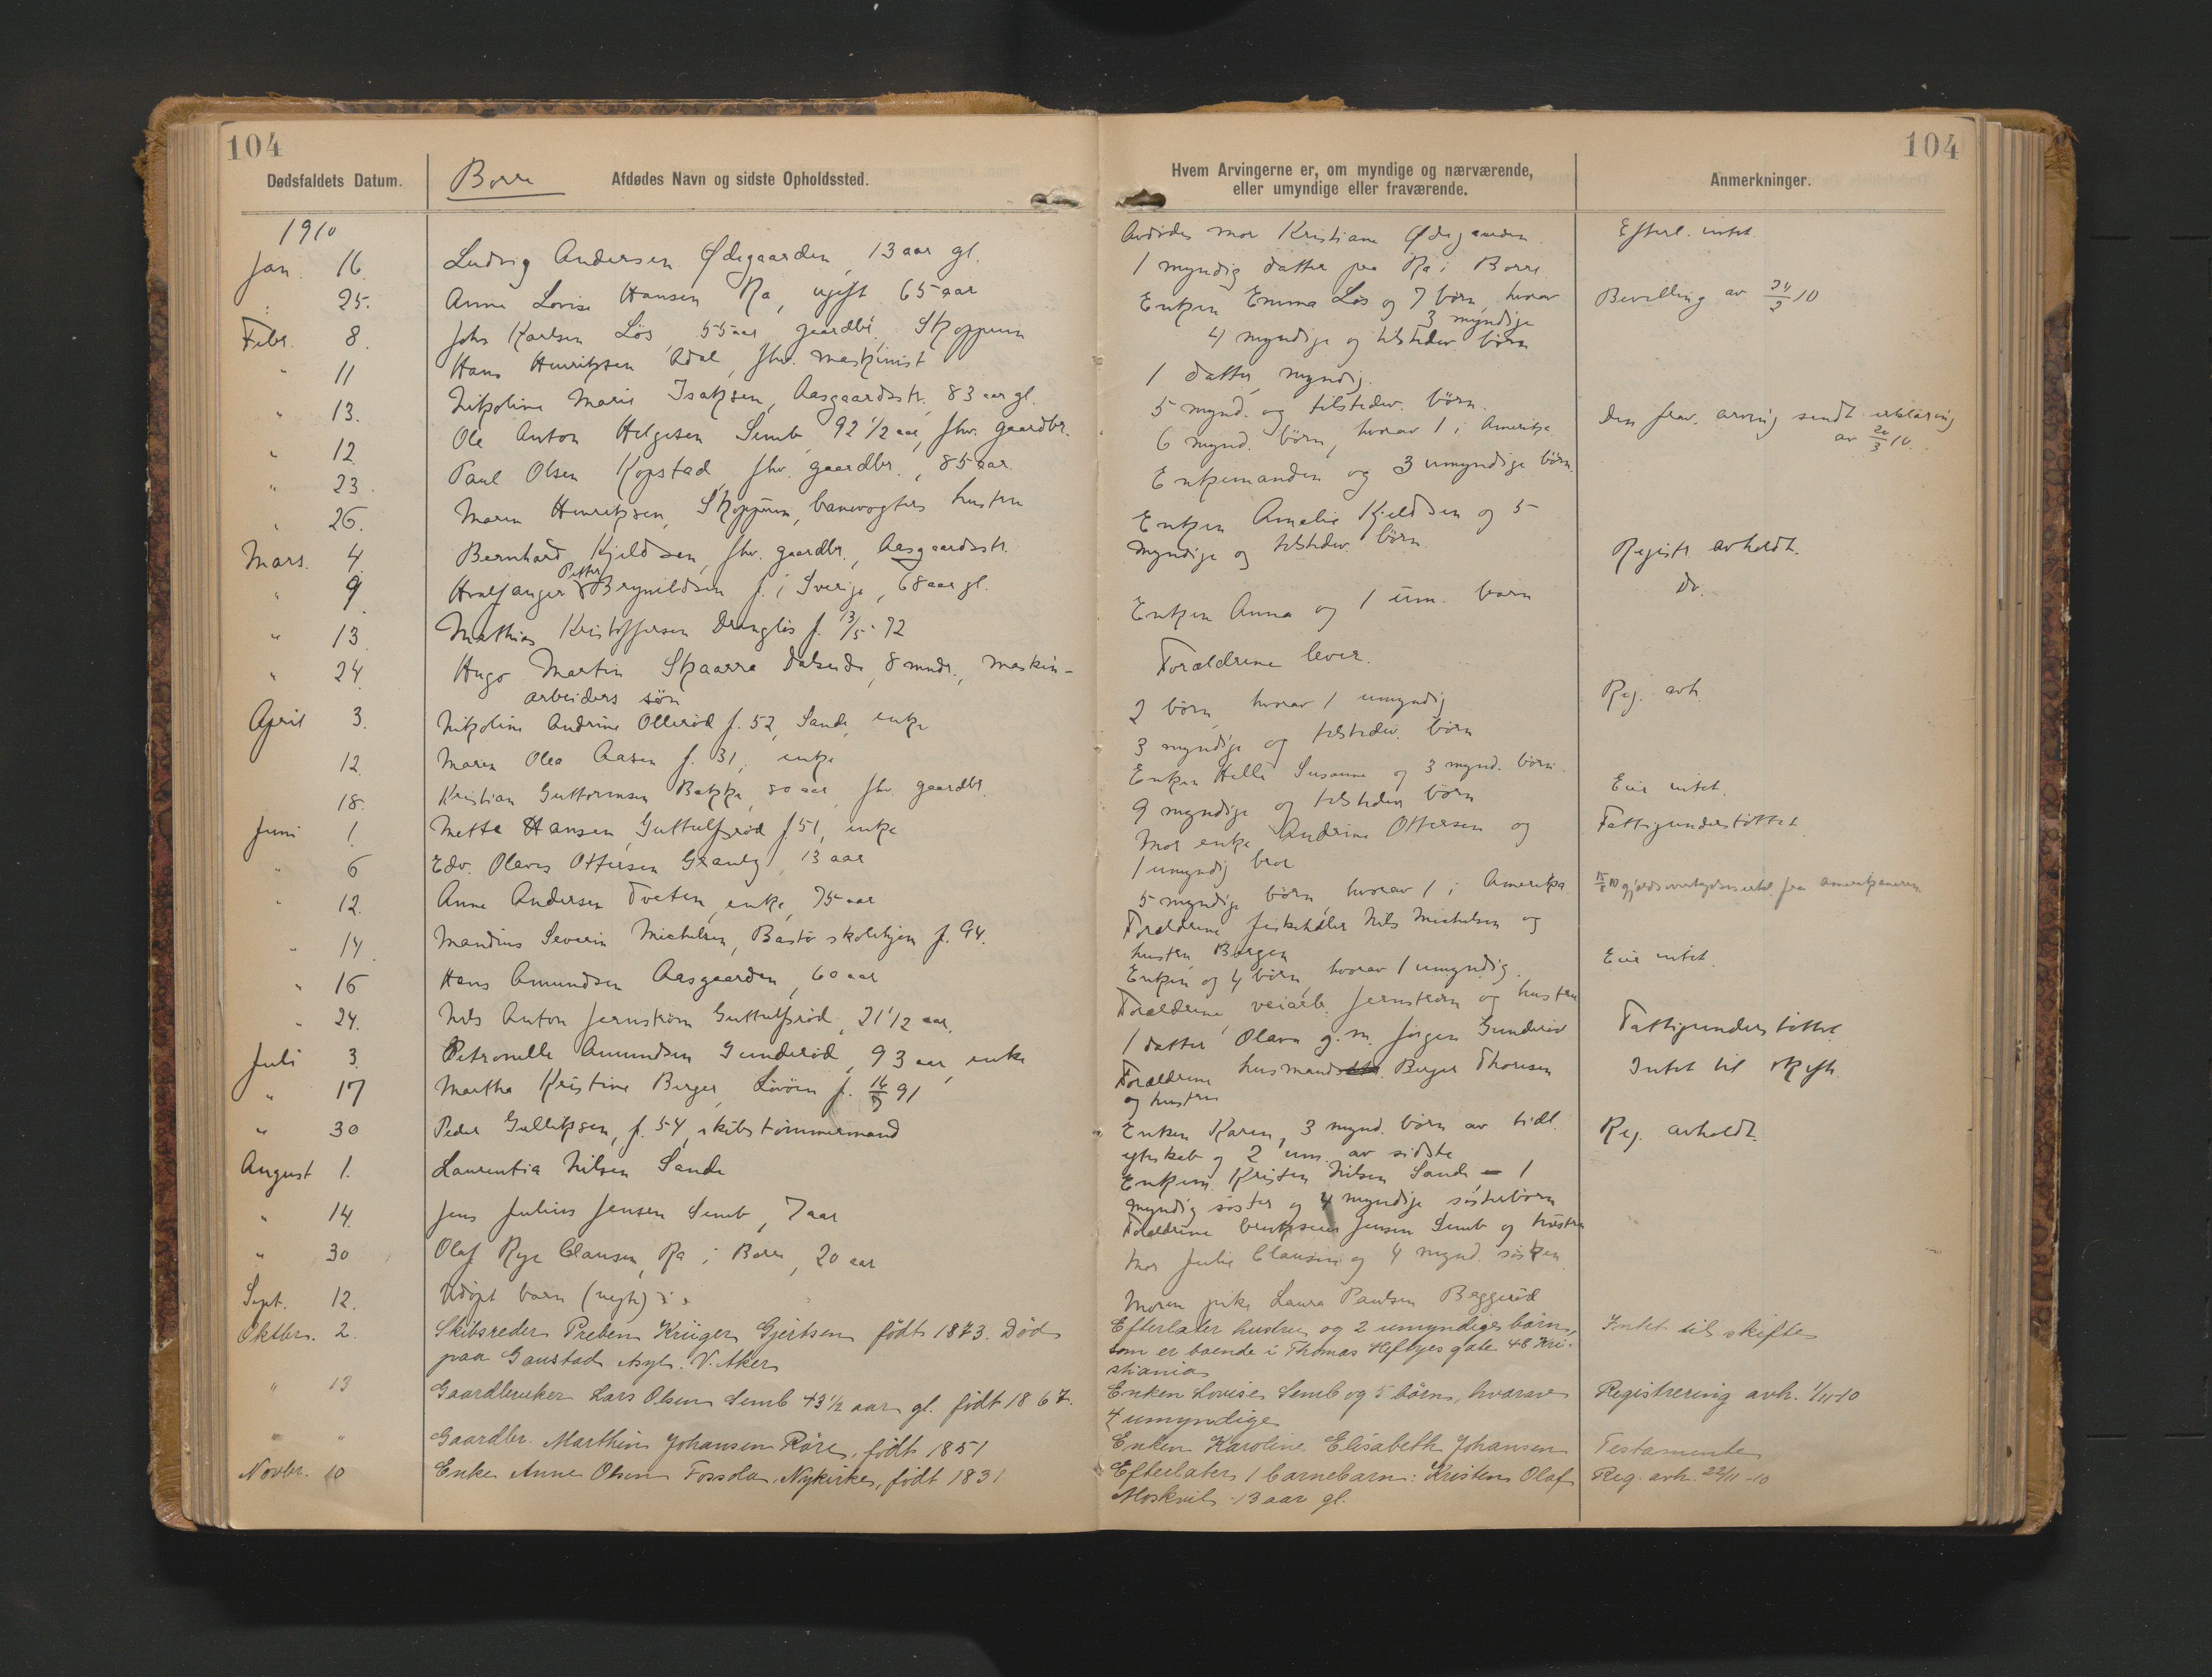 104
104
Dødsfaldets Datum.
Borre
Afdødes Navn og sidste Opholdssted.
Hvem Arvingerne er, om myndige og nærværende,
eller umyndige eller fraværende.
Anmerkninger.
1910
Jan. 16. Ludvig Andersen Ødegaarden, 13 aar gl. Avdødes mor Kristiane Ødegaarden. Efterl. intet.
" 25. Anne Lovise Hansen Ra, ugift 65 aar 1 myndig datter paa Ra i Borre
Febr. 8. Johs Karlsen Løs, 55 aar, gaardbr. Skoppum Enken Emma Løs og 7 børn, hvorav Bevilling av 24/2 10
3 myndige
" 11 Hans Henriksen Adal, fhv. maskinist 4 myndige og tilstedev. børn
" 13. Nikoline Marie Isaksen, Aasgaardsstr. 83 aar gl. 1 datter, myndig.
" 12. Ole Anton Helgesen Semb, 92 1/2 aar, fhv. gaardbr. 5 mynd. og tilstedev. børn.
" 23. Paul Olsen Kopstad, fhv. gaardbr., 85 aar. 6 mynd. børn, hvorav 1 i Amerika. Den frav. arving sendt erklæring
av 20/3 10.
" 26. Maren Henriksen, Skoppum, banevogters hustru Enkemanden og 3 umyndige børn.
Mars. 4. Bernhard Kjeldsen, fhv. gaardbr., Aasgaardsstr. Enken Amalie Kjeldsen og 5
myndige og tilstedev. børn. Registr. avholdt.
" 9. Hvalfanger Petter Brynildsen f. i Sverige, 68 aar gl. Do.
" 13. Mathias Kristoffersen Dranglis f. 13/5 - 72 Enken Anna og 1 um. barn
" 24. Hugo Martin Skaarra, 8 mndr., maskin-
arbeiders søn Forældrene lever.
April 3. Nikoline Andrine Ollerød f. 52, Sande, enke 2 børn, hvorav 1 umyndig Reg. avh.
12. Maren Olea Aasen f. 31, enke 3 myndige og tilstedev. børn
18. Kristian Guttormsen Bakke, 80 aar, fhv. gaardbr. Enken Helle Susanne og 3 mynd. børn.
Juni 1. Mette Hansen, Guttulfsrød f. 51, enke 9 myndige og tilstedev børn Eier intet.
" 6 Edv. Olaves Ottersen Granly, 13 aar Mor enke Andrine Ottersen og
1 umyndig bror Fattigunderstøttet.
" 12. Anne Andersen Tveten, enke, 75 aar 5 myndige børn, hvorav 1 i Amerika 15/8 10 gjeldsovertagelseserkl. fra amerikaneren
" 14. Mandius Severin Michelsen, Bastø skolehjem f. 94. Forældrene fiskehdler Nils Michelsen og
hustru Bergen
" 16 Hans Amundsen Aasgaarden, 60 aar Enken og 4 børn, hvorav 1 umyndig. Eier intet.
" 24. Nils Anton Jernstrøm Guttulfsrød, 21 1/2 aar. Forældrene, veiarb. Jernstrøm og hustru
Juli 3. Petronelle Amundsen Gunderød, 93 aar, enke 1 datter Olava g. m. Jørgen Gunderød Fattigunderstøttet.
" 17 Martha Kristine Berger, Løvøen f. 16/7 91 Forældrene husmand Berger Thoresen
og hustru Intet til skifte.
" 30 Peder Gulliksen, f. 54, skibstømmermand Enken Karen, 3 mynd. børn av tidl.
egteskab og 2 um. av sidste Reg. avholdt.
August 1. Laurentia Nilsen Sande Enkem. Kristen Nilsen Sande 1
myndig søster og 4 myndige søsterbørn
" 14. Jens Julius Jensen Semb, 7 aar Forældrene brukseier Jensen Semb og hustru
" 30 Olaf Rye Clausen, Ra i Borre, 20 aar Mor Julie Clausen og 4 mynd. søsken
Sept. 12. Udøpt barn (uegte) Moren pike Laura Paulsen Baggerød
Oktbr. 2. Skibsreder Preben Krüger Gjertsen født 1873. Død Efterlater hustru og 2 umyndige børn, Intet til skifte
paa Gaustad Asyl. V. Aker som er boende i Thomas Heftyes gate 48 Kri-
stiania
" 13 Gaardbruker Lars Olsen Semb 43 1/2 aar gl. født 1867. Enken Lovise Semb og 5 børn, hvorav Registrering avh. 1/11-10
4 umyndige
" " Gaardbr. Marthin Johansen Røre, født 1851 Enken Karoline Elisabeth Johansen Testamente
Novbr. 10 Enke Anne Olsen Fossda, Nykirke, født 1831 Efterlater 1 barnebarn: Kristen Olaf Reg. avh. 22/11-10
Moskvil 13 aar gl.